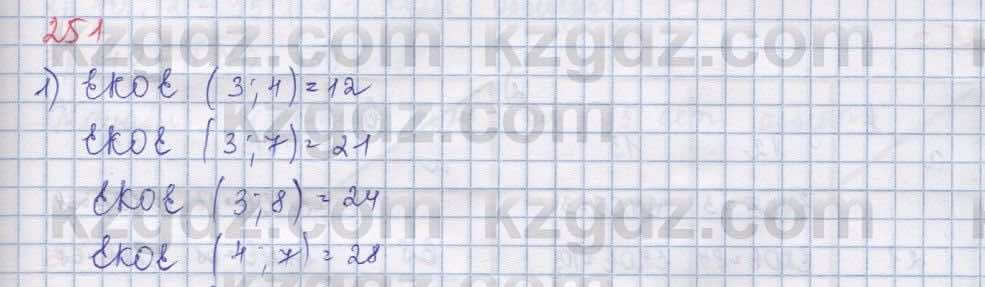 251
1) ЕКОЕ (3; 4) = 12
ЕКОЕ (3; 7) = 21
ЕКОЕ (3; 8) = 24
ЕКОЕ (4; 7) = 28
kzgdz.com kzgdz.com
kzgdz.com
kzgdz.com kzgdz.com
kzgdz.com